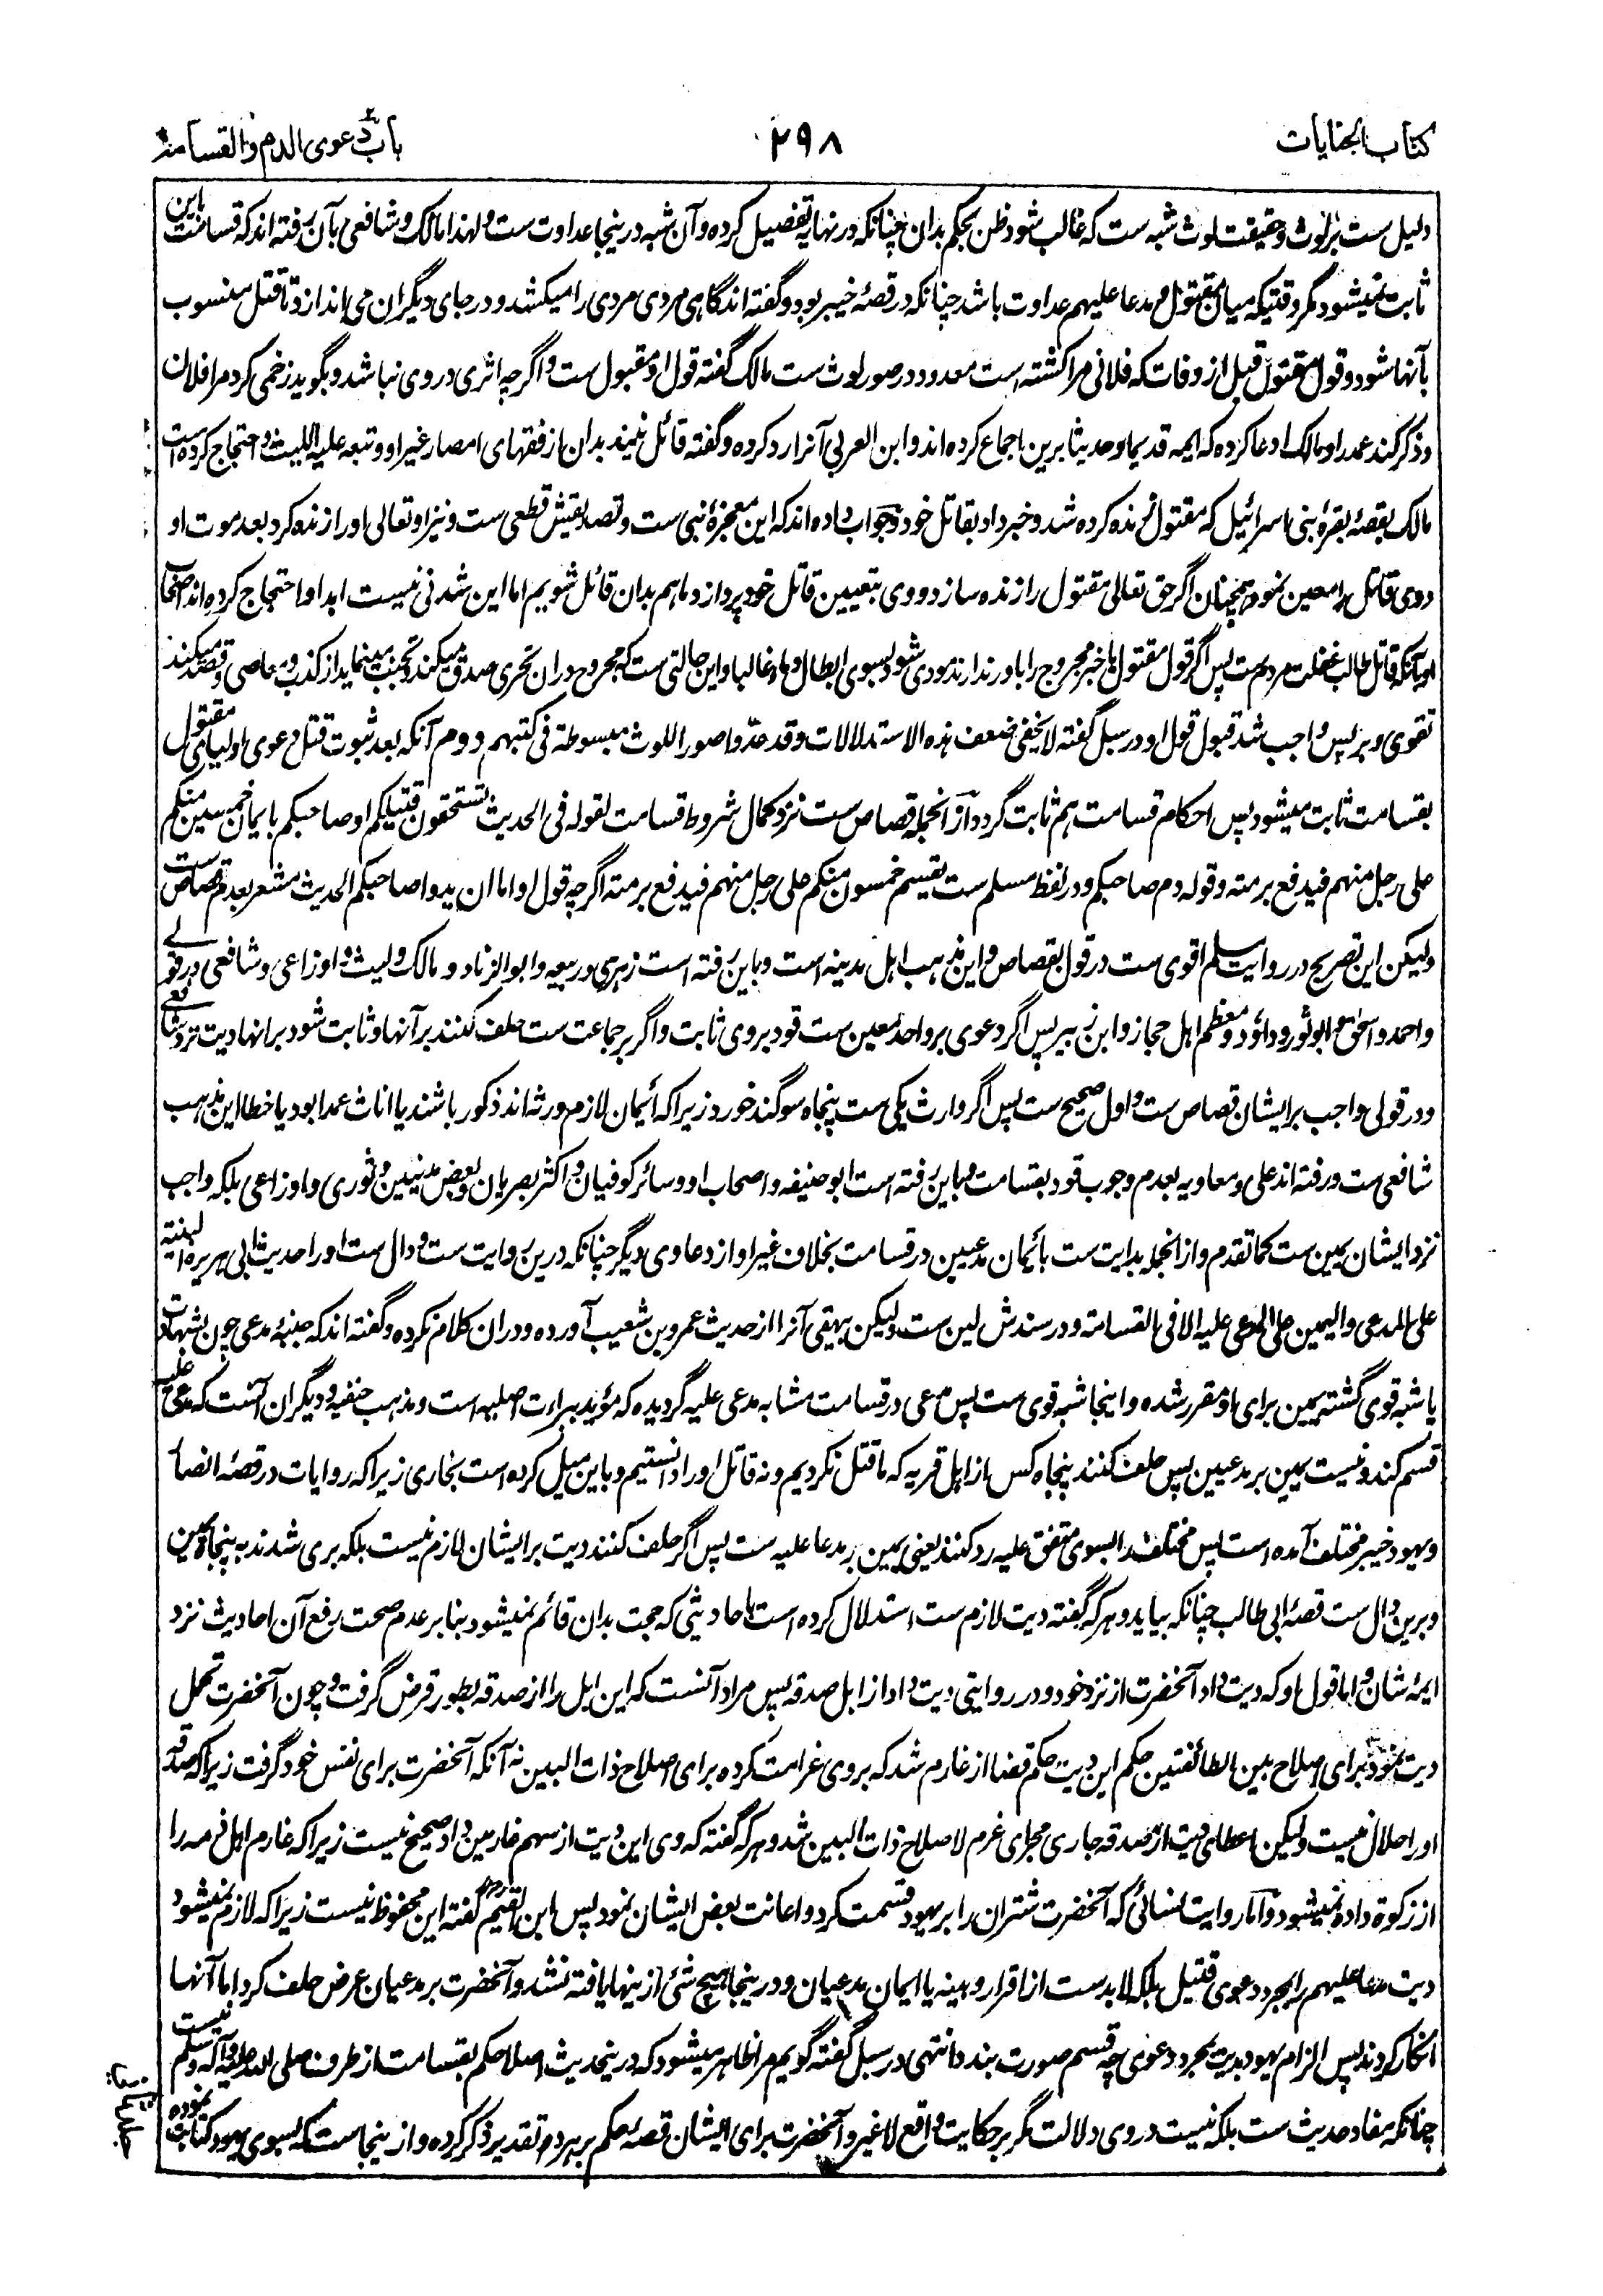 کتاب الجنایات
۲۹۸
باب دعوی الدم والقسامة
دلیل ست بر لوث وحقیقت لوث شبه ست که غالب شود ظن بحکم بدان چنانکه در نهایه تفصیل کرده وآن شبه در ینجا عداوت ست ولهذا مالک وشافعی بآن رفته اند که قسامت باین
ثابت نمیشود مگر وقتیکه میان مقتول ومدعا علیهم عداوت باشد چنانکه در قصهٔ خیبر بود وگفته اند گاهی مردی مردی را میکشد ودر جای دیگران می اندازد تا قتل منسوب
بآنها شود وقول مقتول قبل از وفات که فلانی مرا کشته است معدود در صور لوث ست مالک گفته قول او مقبول ست واگرچه اثری در وی نباشد وبگوید زخمی کرد مرا فلان
وذکر کند عمد را ومالک ادعا کرده که ایمه قدیما وحدیثا برین اجماع کرده اند وابن العربی آنرا رد کرده وگفته قائل نیند بدان از فقهای امصار غیر او وتبعه علیه اللیث واحتجاج کرده است
مالک بقصهٔ بقرهٔ بنی اسرائیل که مقتول زنده کرده شد وخبر داد بقاتل خود وجواب داده اند که این معجزهٔ نبی ست وتصدیقش قطعی ست ونیز او تعالی او را زنده کرد بعد موت او
ووی قاتل را معین نمود همچنان اگر حق تعالی مقتول را زنده سازد ووی بتعیین قاتل خود پردازد ما هم بدان قائل شویم اما این شدنی نیست ابدا واحتجاج کرده اند اصحاب
او بآنکه قاتل طالب غفلت مردم ست پس اگر قول مقتول یا خبر مجروح را باور ندارند مودی شود بسوی ابطال دماء غالبا واین حالتی ست که مجروح دران تحری صدق میکند وتجنب مینماید از کذب ومعاصی وقصد میکند
تقوی وبر پس واجب شد قبول قول او در سبل گفته لا یخفی ضعف هذه الاستدلالات وقد عدّوا صور اللوث مبسوطة فی کتبهم دوم آنکه بعد ثبوت قتل دعوی اولیای مقتول
بقسامت ثابت میشود پس احکام قسامت هم ثابت گردد از انجمله قصاص ست نزد کمال شروط قسامت لقوله فی الحدیث تستحقون قتیلکم او صاحبکم بایمان خمسین منکم
علی رجل منهم فیدفع برمته وقوله دم صاحبکم ودر لفظ مسلم ست یقسم خمسون منکم علی رجل منهم فیدفع برمته اگرچه قول او اما ان یدوا صاحبکم الحدیث مشعر بعدم قصاص ست
ولیکن این تصریح در روایت مسلم اقوی ست در قول بقصاص واین مذهب اهل مدینه است وباین رفته است زهری وربیعه وابو الزناد ومالک ولیث واوزاعی وشافعی در قولے
واحمد واسحٰق وابو ثور وداؤد ومعظم اهل حجاز وابن زبیر پس اگر دعوی بر واحد معین ست قود بر وی ثابت واگر بر جماعت ست حلف کنند بر آنها وثابت شود بر انها دیت نزد شافعے
ودر قولی واجب بر ایشان قصاص ست واول صحیح ست پس اگر وارث یکی ست پنجاه سوگند خورد زیرا که ائیمان لازم ورثه اند ذکور باشند یا اناث عمدا بود یا خطا این مذهب
شافعی ست ورفته اند علی ومعاویه بعدم وجوب قود بقسامت وباین رفته است ابو حنیفه واصحاب او وسائر کوفیان واکثر بصریان وبعض مدنیین وثوری واوزاعی بلکه واجب
نزد ایشان یمین ست کما تقدم واز انجمله بدایت ست بائیمان مدعیین در قسامت بخلاف غیر او از دعاوی دیگر چنانکه درین روایت ست ودال ست او را حدیث ابی هریره البینة
علی المدعی والیمین علی المدعی علیه الا فی القسامة ودر سندش لین ست ولیکن بیهقی آنرا از حدیث عمرو بن شعیب آورده ودران کلام نکرده وگفته اند که جنبهٔ مدعی چون بشهادت
یا شبه قوی گشته یمین برای او مقرر شده واینجا شبه قوی ست پس مدعی در قسامت مشابه مدعی علیه گردیده که مؤید ببراءت اصلیه است ومذهب حنفیه ودیگران آنست که مدعی علیه
قسم کند ونیست یمین بر مدعیین پس حلف کنند پنجاه کس از اهل قریه که ما قتل نکردیم ونه قاتل او را دانستیم وباین میل کرده است بخاری زیرا که روایات در قصهٔ انصار
ویهود خیبر مختلف آمده است پس مختلف را بسوی متفق علیه رد کنند یعنی یمین بر مدعا علیه ست پس اگر حلف کنند دیت بر ایشان لازم نیست بلکه بری شدند به پنجاه یمین
وبرین دال ست قصهٔ ابی طالب چنانکه بیاید وهر که گفته دیت لازم ست استدلال کرده است باحادیثی که حجت بدان قائم نمیشود بنا بر عدم صحت رفع آن احادیث نزد
ایمه شان واما قول او که دیت داد آنحضرت از نزد خود ودر روایتی دیت داد از ابل صدقه پس مراد آنست که این ابل را از صدقه بطور قرض گرفت وچون آنحضرت تحمل
دیت نمود برای اصلاح بین الطائفتین حکم این دیت حکم قضا از غارم شد که بروی غرامت کرده برای اصلاح ذات البین نه آنکه آنحضرت برای نفس خود گرفت زیرا که صدقه
او را حلال نیست ولیکن اعطای دیت از صدقه جاری مجرای غرم لاصلاح ذات البین شد وهر که گفته که وی این دیت از سهم غارمین داد صحیح نیست زیرا که غارم اهل ذمه را
از زکوة داده نمیشود واما روایت نسائی که آنحضرت شتران را بر یهود قسمت کرد واعانت بعض ایشان نمود پس ابن القیم گفته این محفوظ نیست زیرا که لازم نمیشود
دیت مدعا علیهم را بمجرد دعوی قتیل بلکه لابد ست از اقرار وبینه یا ایمان مدعیان ودر ینجا هیچ شئ ازینها یافته نشد وآنحضرت بر مدعیان عرض حلف کرد اما آنها
انکار کردند پس الزام یهود بدیت بمجرد دعوی چه قسم صورت بندد انتهی در سبل گفته گویم مرا ظاهر میشود که درینحدیث اصلا حکم بقسامت از طرف صلی الله علیه وآله وسلم نیست
چنانکه مفاد حدیث ست بلکه نیست در وی دلالت مگر بر حکایت واقع لا غیر وآنحضرت برای ایشان قصهٔ حکم بر هر دو تقدیر ذکر کرده واز ینجاست که بسوی یهود کتابت نموده